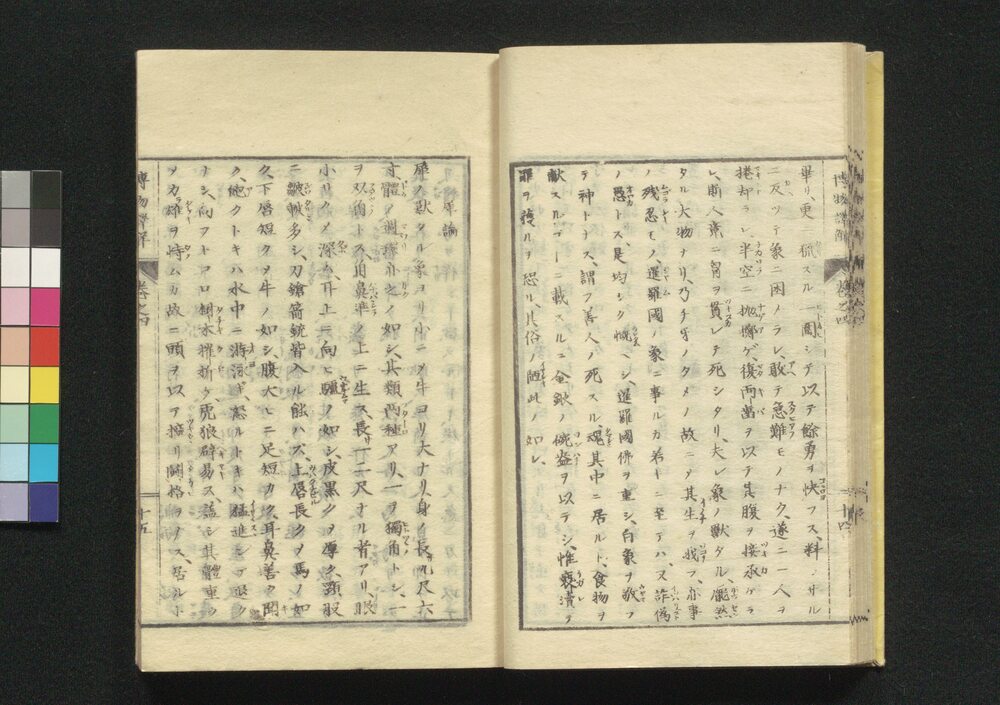 畢リ、更ニ猟スルヿ一周シテ以テ餘勇ヲ快フス、料ラサル
ニ反ツテ象ニ困メラレ、敢テ急難モノナク、遂ニ一人ヲ
捲却ラレ、半空ニ抛擲ゲ、復両齒ヲ以テ其腹ヲ接承ケラ
レ、斯人棄ニ胷ヲ貫レテ死シタリ、夫レ象ノ獸タル、龐然
タル大物ナリ、乃チ牙ノタメノ故ニ其生ヲ戕フ、亦事
ノ残忍モノ、暹羅國ノ象ニ事ルカ若キニ至テハ、又詐偽
ノ愚トス、是均シク慨ヘシ、暹羅國佛ヲ重シ、白象ヲ敬フ
テ神トナス、謂フ善人ノ死スル、魂其中ニ居ルト、食物ヲ
献スルヿニ載スルニ金銀ノ碗盗ヲ以テシ、惟褻瀆テ
罪ヲ獲ルヲ恐ル、其俗ノ陋此ノ如シ、
博物譯解 巻之四 十四
犀論
犀ノ獸タル、象ヨリ小ニ〆牛ヨリ大ナリ、身ノ長九尺六
寸、體ノ周環亦之ノ如シ、其類両種アリ、一ヲ獨角トシ、一
ヲ双角トス、角鼻準ノ上ニ生ス、長サ一二尺ナル者アリ、眼
小リク〆深ク、耳上ニ向ヒ驢ノ如シ、皮黒ク〆厚ク、頸股
ニ皺紋多シ、刀鎗箭銃皆入ル能ハズ、上唇長ク〆馬ノ如
ク、下唇短ク〆牛ノ如シ、腹大ヒニ足短カク、耳鼻善ク聞
ク、他クトキハ水中ニ游泳ギ、怒ルトキハ猛進シテ退ク
ナシ、向フトコロ樹木摧折ケ、虎狼辟易ス、蓋シ其體重ク
ヲカ雄ヲ恃ム、カ故ニ頭ヲ以テ擴リ闘格ヲノス、居ル小
博物譯解 巻之四 十五